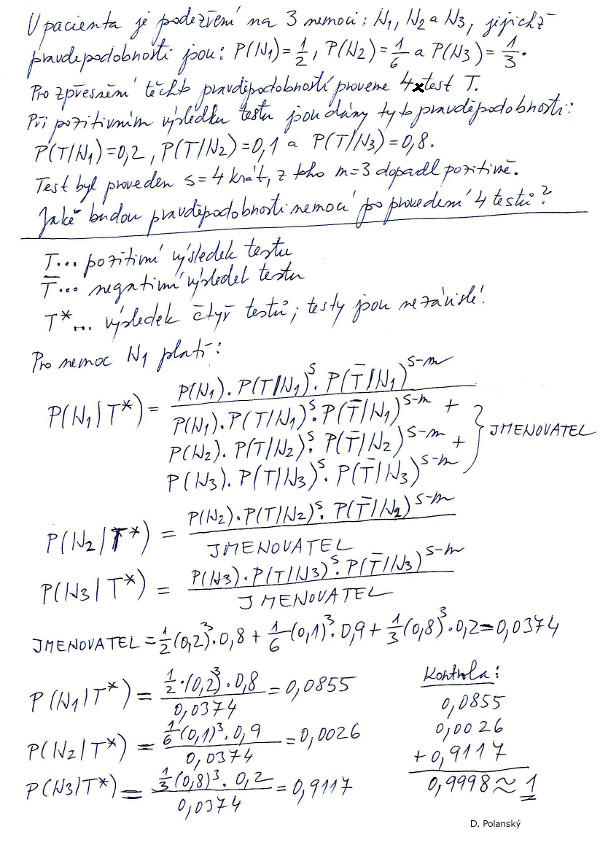 U pacienta je podezření na 3 nemoci: N₁, N₂ a N₃, jejichž
pravděpodobnosti jsou: P(N₁)=1/2, P(N₂)=1/6 a P(N₃)=1/3.
Pro zpřesnění těchto pravděpodobností proveme 4x test T.
Při pozitivním výsledku testu jsou dány tyto pravděpodobnosti:
P(T/N₁)=0,2, P(T/N₂)=0,1 a P(T/N₃)=0,8.
Test byl proveden s=4 krát, z toho m=3 dopadl pozitivně.
Jaké budou pravděpodobnosti nemocí po provedení 4 testů?
T... pozitivní výsledek testu
T̄... negativní výsledek testu
T*... výsledek čtyř testů; testy jsou nezávislé!
Pro nemoc N₁ platí:
P(N₁|T*) = P(N₁).P(T/N₁)ˢ.P(T̄/N₁)ˢ⁻ᵐ
P(N₁).P(T/N₁)ˢ.P(T̄/N₁)ˢ⁻ᵐ +
P(N₂).P(T/N₂)ˢ.P(T̄/N₂)ˢ⁻ᵐ + } JMENOVATEL
P(N₃).P(T/N₃)ˢ.P(T̄/N₃)ˢ⁻ᵐ
P(N₂|T*) = P(N₂).P(T/N₂)ˢ.P(T̄/N₂)ˢ⁻ᵐ
JMENOVATEL
P(N₃|T*) = P(N₃).P(T/N₃)ˢ.P(T̄/N₃)ˢ⁻ᵐ
JMENOVATEL
JMENOVATEL = 1/2(0,2)³.0,8 + 1/6(0,1)³.0,9 + 1/3(0,8)³.0,2 = 0,0374
P(N₁|T*) = 1/2.(0,2)³.0,8 / 0,0374 = 0,0855
P(N₂|T*) = 1/6(0,1)³.0,9 / 0,0374 = 0,0026
P(N₃|T*) = 1/3(0,8)³.0,2 / 0,0374 = 0,9117
Kontrola:
0,0855
0,0026
+0,9117
0,9998 ≈ 1
D. Polanský